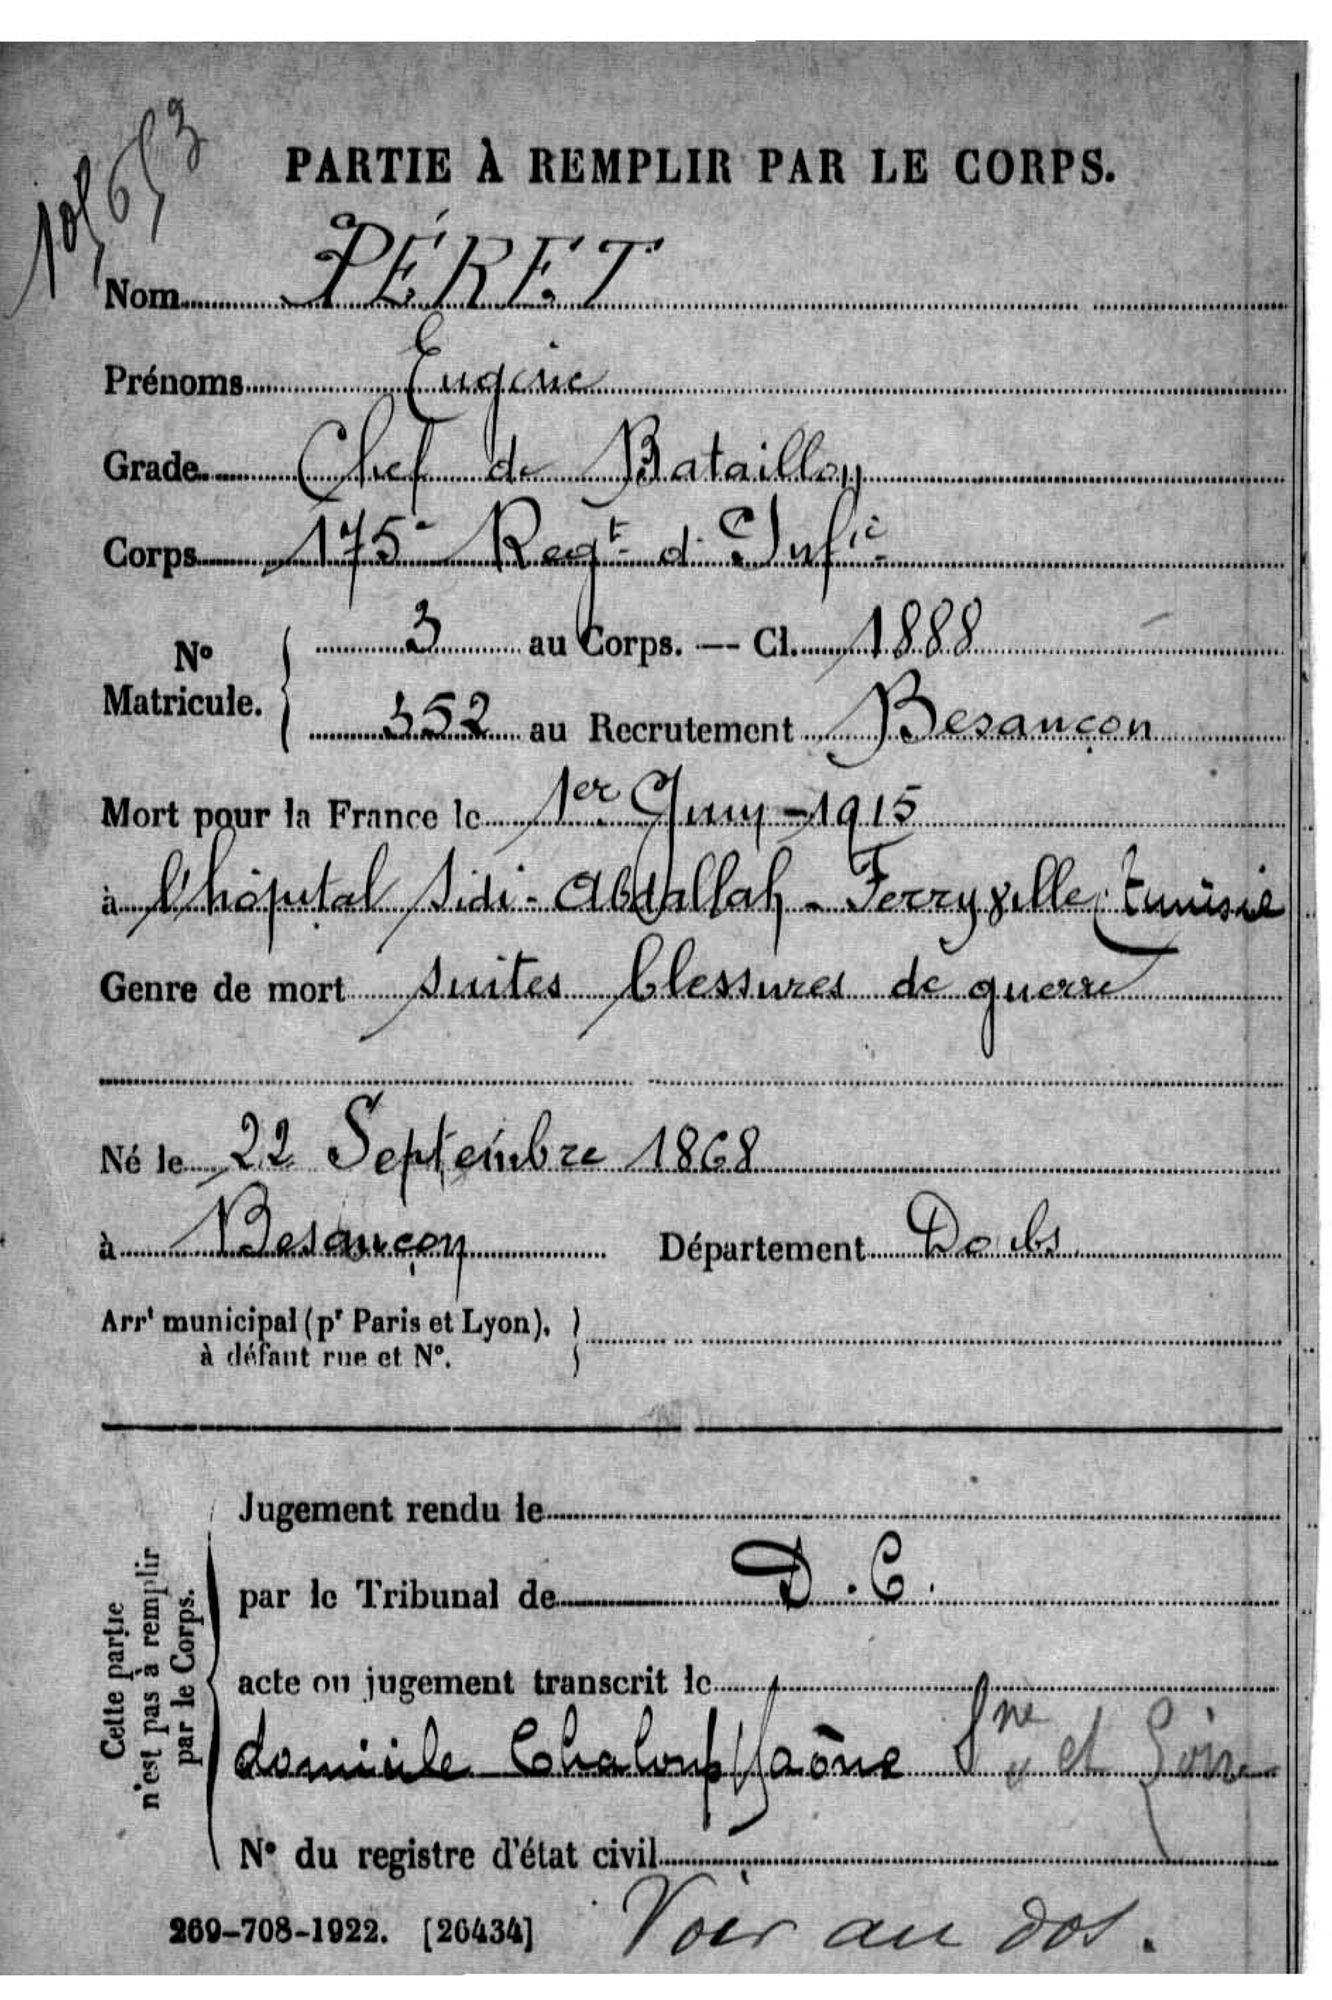 PARTIE À REMPLIR PAR LE CORPS.
Nom PÉRET
Prénoms Eugène
Grade Chef de Bataillon
Corps 175e Regt d'Infie
No Matricule. 3 au Corps. — Cl. 1888
352 au Recrutement Besançon
Mort pour la France le 1er Juin - 1915
à l'hôpital Sidi-Abdallah - Ferryville Tunisie
Genre de mort suites blessures de guerre
Né le 22 Septembre 1868
à Besançon Département Doubs
Arrt municipal (pr Paris et Lyon),
à défaut rue et No.
Cette partie
n'est pas à remplir
par le Corps.
Jugement rendu le
par le Tribunal de D.C.
acte ou jugement transcrit le
domicile Chalon s/Saône Sne et Loire
No du registre d'état civil
269-708-1922. [26434] Voir au dos.